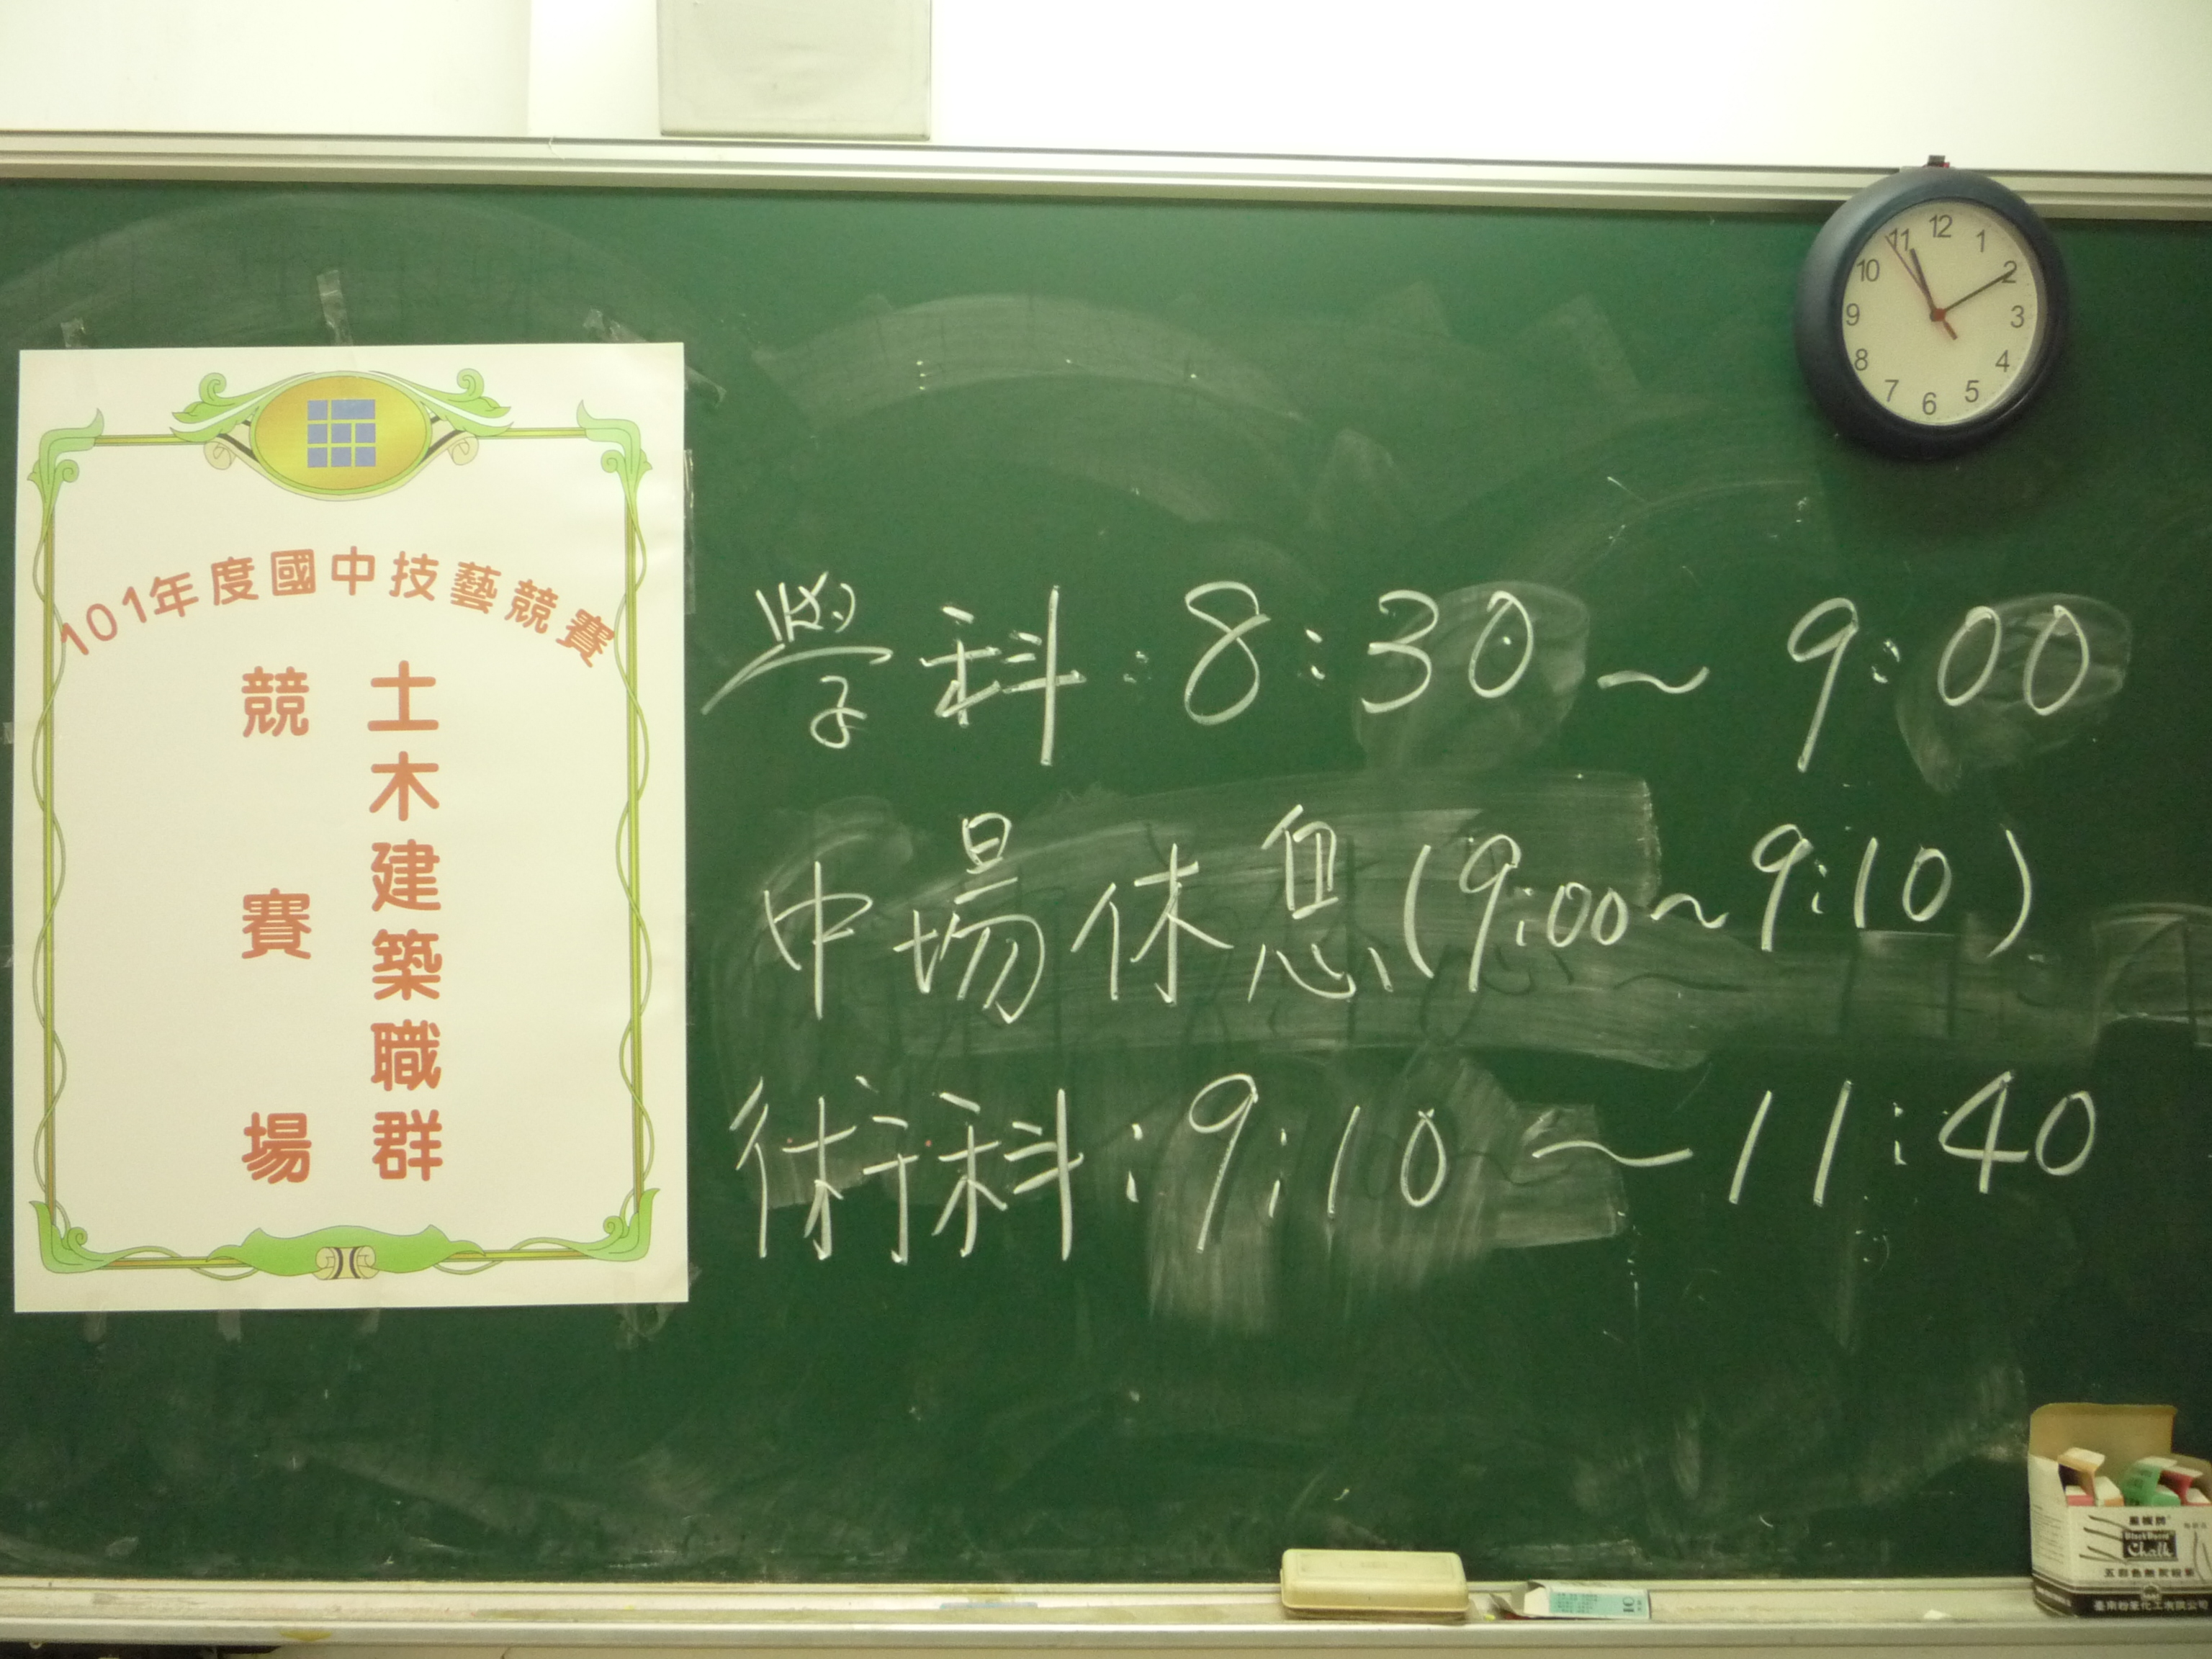 101年度國中技藝競賽
土木建築職群
競賽場
學科:8:30~9:00
中場休息(9:00~9:10)
術科:9:10~11:40
12
1
2
3
4
5
6
7
8
9
10
11
BlackBoard
Chalk
臺南粉筆化工有限公司
10